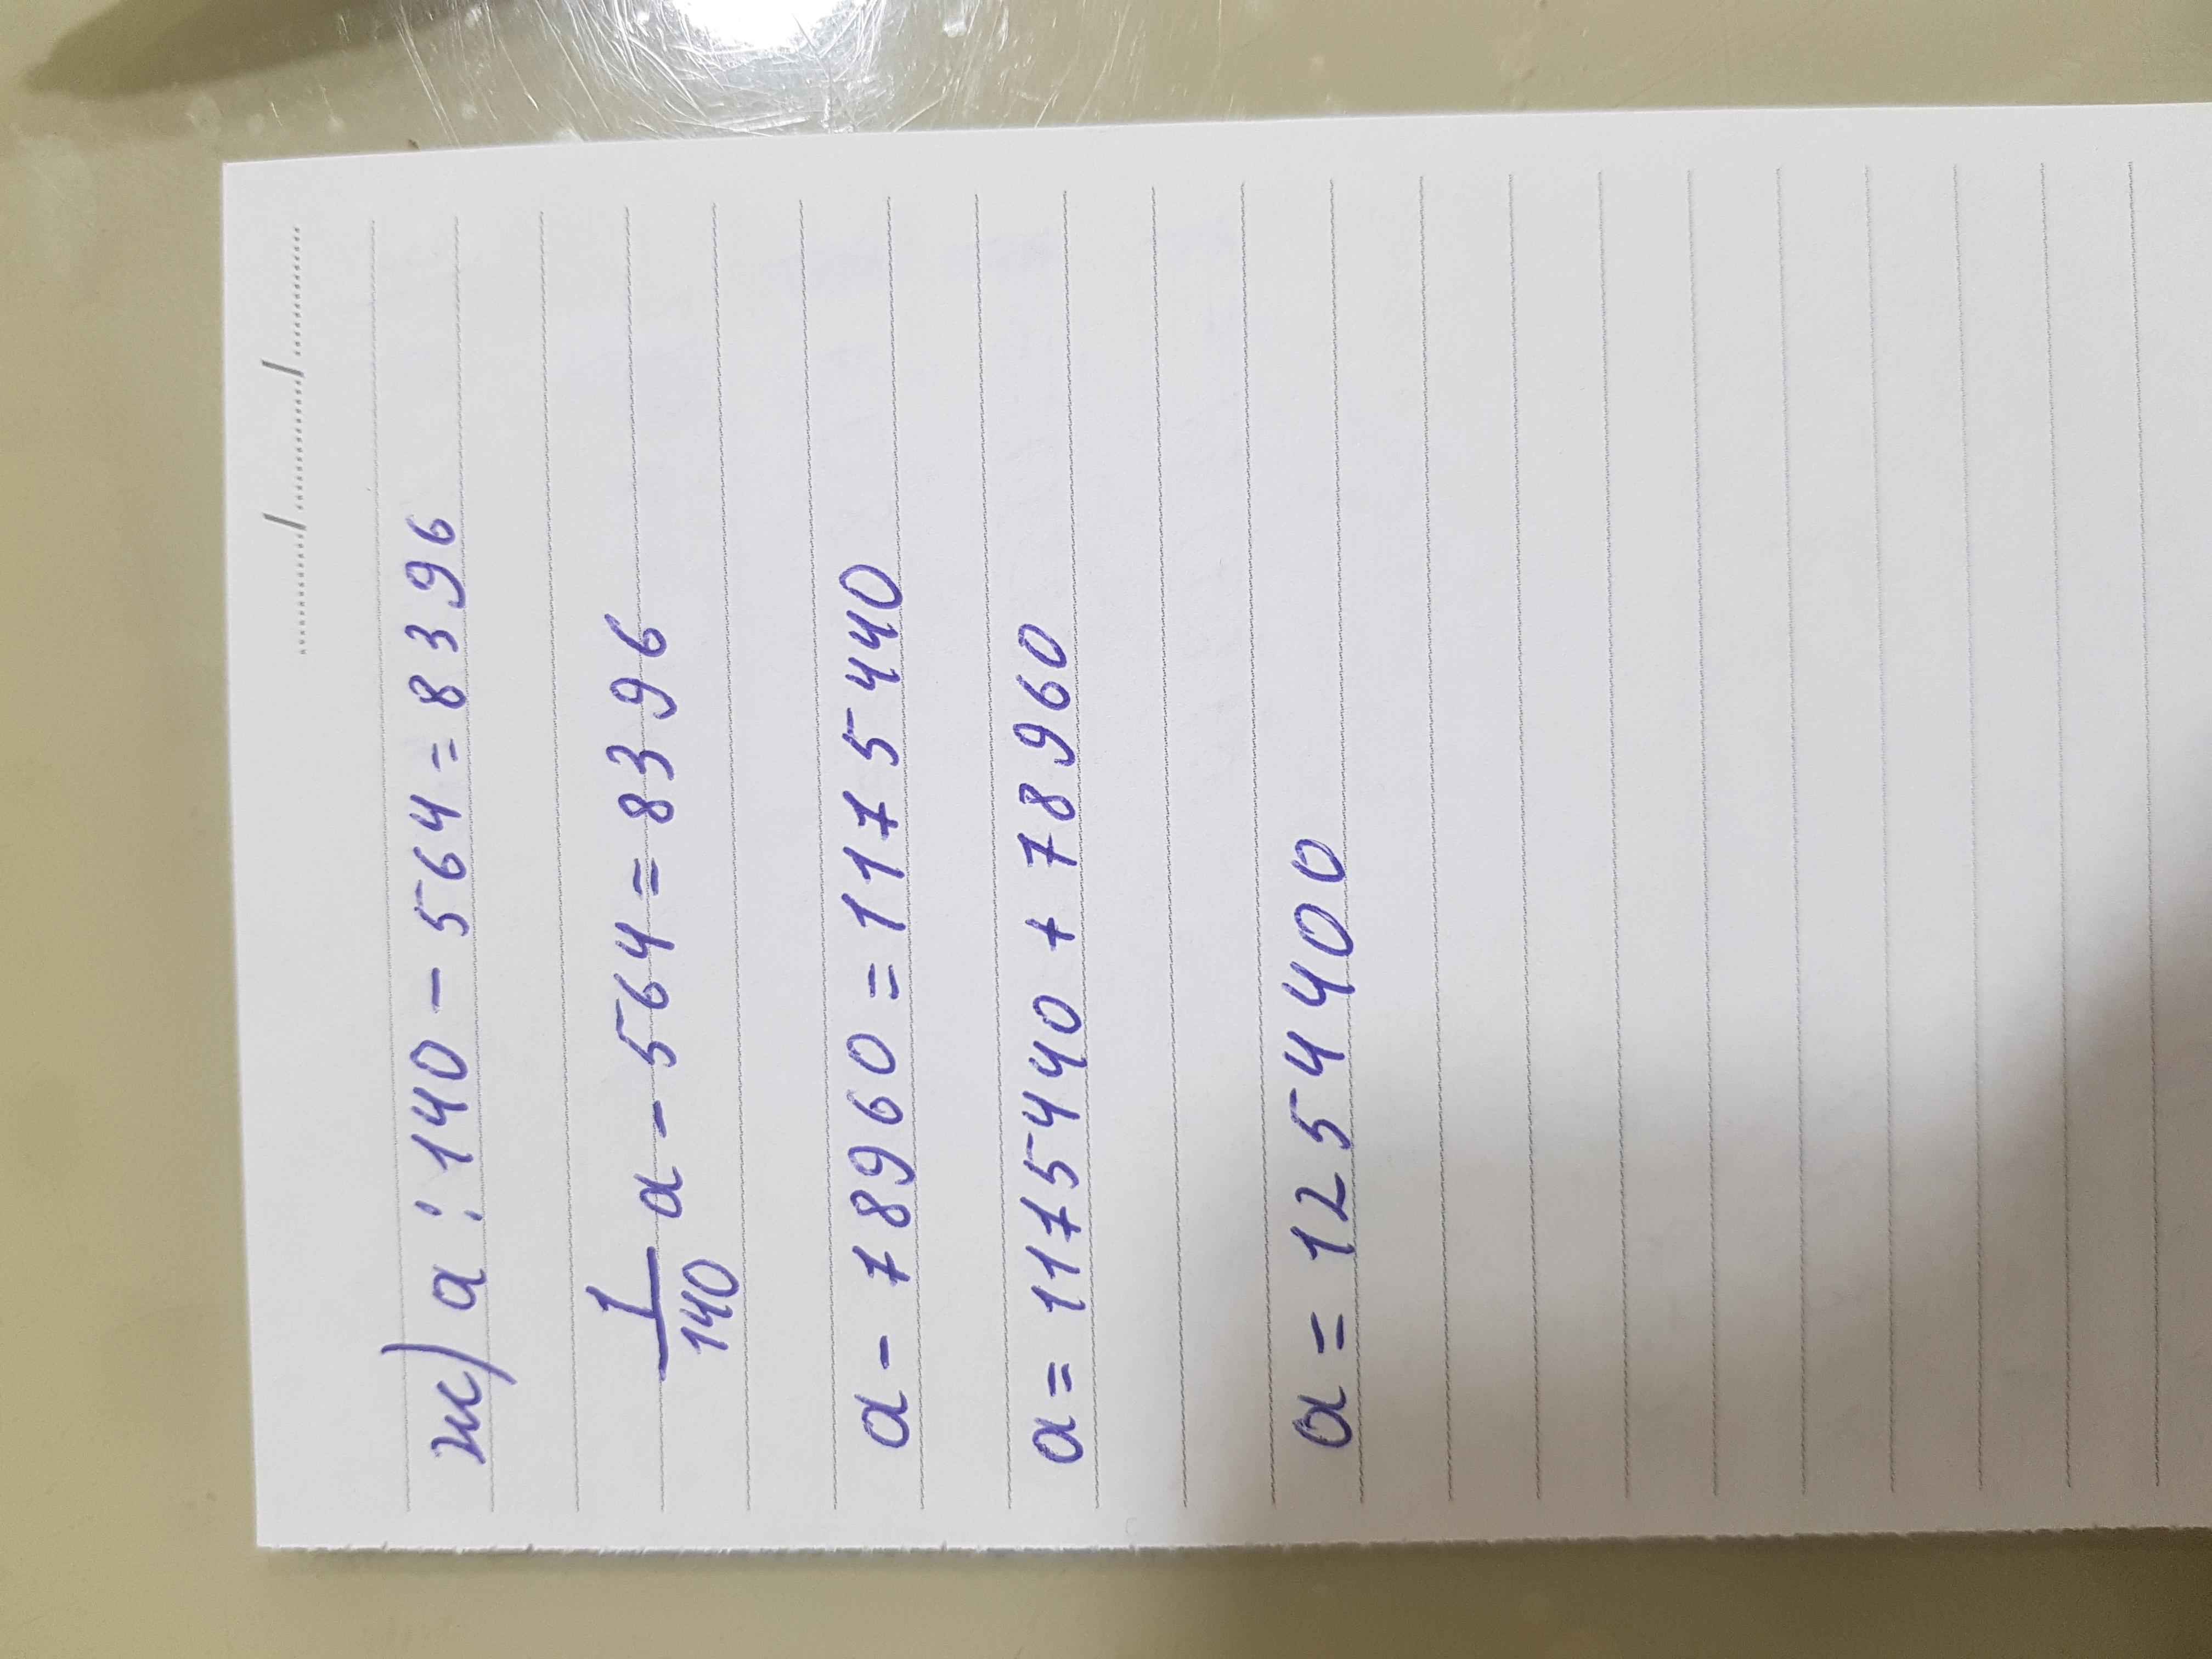 ........../........../..........
ж) a : 140 - 564 = 8396
1/140 a - 564 = 8396
a - 78960 = 1175440
a = 1175440 + 78960
a = 1254400